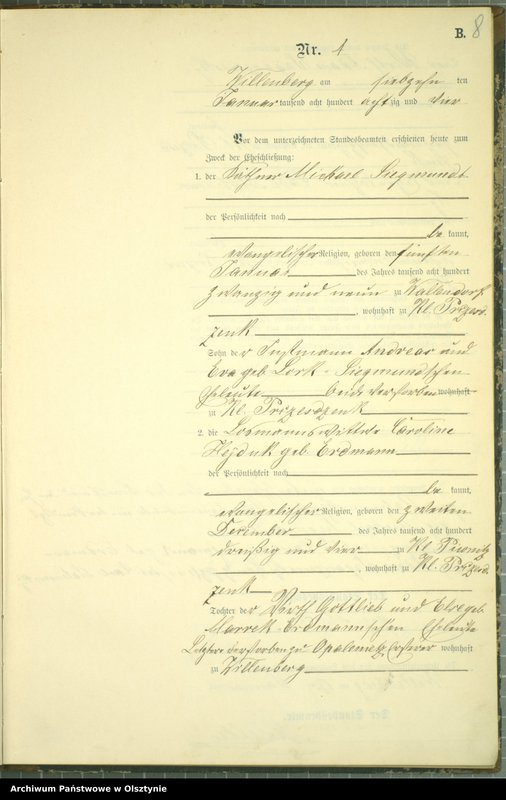 B. 8
Nr. 1
Willenberg am siebzehn ten
Januar tausend acht hundert achtzig und vier
Vor dem unterzeichneten Standesbeamten erschienen heute zum
Zweck der Eheschließung:
1. der Käthner Michael Siegmundt
der Persönlichkeit nach
be kannt,
evangelischer Religion, geboren den fünften
Januar des Jahres tausend acht hundert
zwanzig und neun zu Wallendorf
, wohnhaft zu Kl. Przezd-
zenk
Sohn der Instmann Andreas und
Eva geb. Lork - Siegmundtschen
Eheleute beide verstorben wohnhaft
zu Kl. Przezdzenk
2. die Losmannswittwe Caroline
Hejduk geb. Erdmann
der Persönlichkeit nach
be kannt,
evangelischer Religion, geboren den zweiten
Dezember des Jahres tausend acht hundert
dreißig und vier zu Kl. Piwnitz
, wohnhaft zu Kl. Przezd-
zenk
Tochter der Wirth Gottlieb und geb.
Marrek - Erdmannschen Eheleute
Letztere verstorben zu Opalenietz Ersterer wohnhaft
zu Willenberg
Archiwum Państwowe w Olsztynie